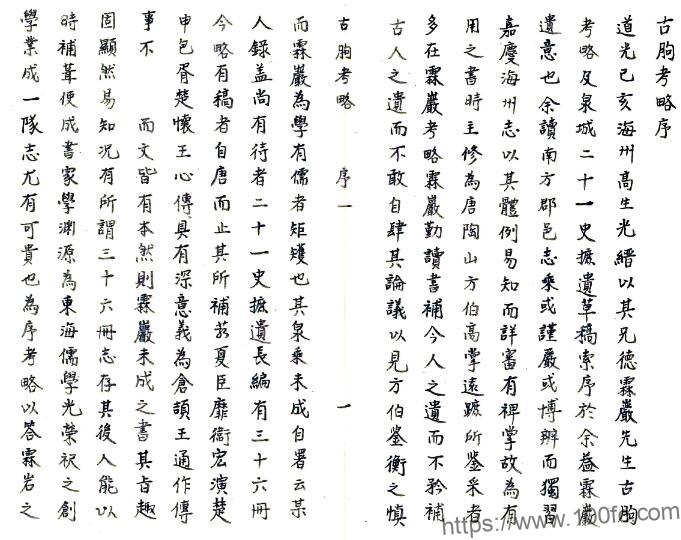 古朐考略序
道光己亥海州高生光縉以其兄德霖巖先生古朐
考略及泉城二十一史摭遺草稿索序於余益霖巖
遺意也余讀南方郡邑志乘或謹嚴或博辦而獨習
嘉慶海州志以其體例易知而詳審有裨掌故為有
用之書時主修為唐陶山方伯高掌遠蹠所鉴采者
多在霖巖考略霖巖勤讀書補今人之遺而不矜補
古人之遺而不敢自肆其論議以見方伯鉴衡之慎
古朐考略 序一 一
而霖巖為學有儒者矩矱也其泉乘未成自署云某
人錄盖尚有待者二十一史摭遺長編有三十六冊
今略有稿者自唐而止其所補若夏臣靡衛宏演楚
申包胥楚懷王心傳具有深意義為倉頡王通作傳
事不 而文皆有本然則霖巖未成之書其旨趣
固顯然易知况有所謂三十六冊志存其後人能以
時補葺便成書家學渊源為東海儒學光榮祝之創
學業成一隊志尤有可貴也為序考略以答霖岩之
https://www.100fd.com